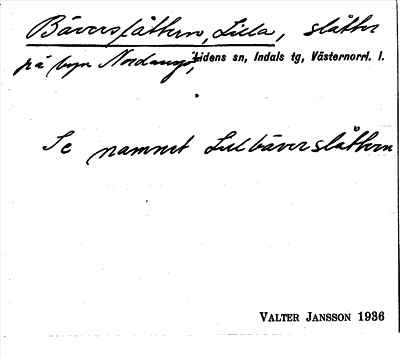 Bäverslåttern, Lilla, slåtter
på byn Nordanåg, Lidens sn, Indals tg, Västernorrl. l.
Se namnet Lillbäverslåttern
VALTER JANSSON 1936